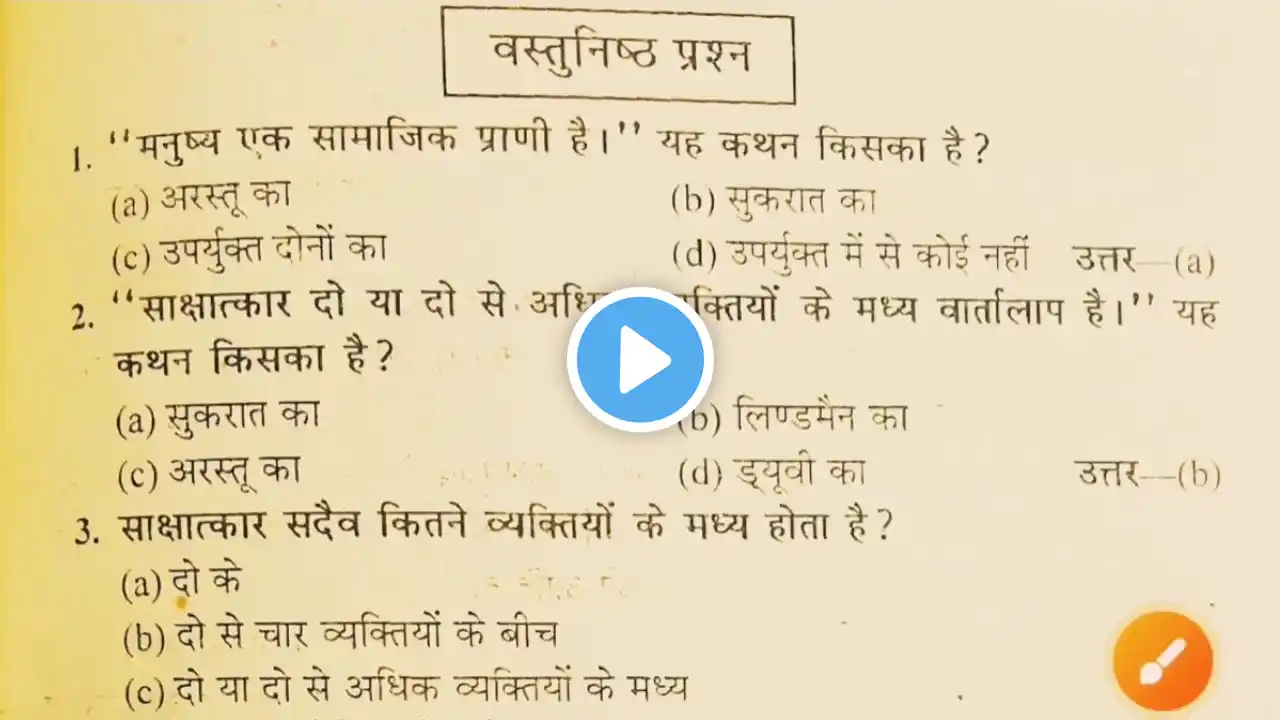 वस्तुनिष्ठ प्रश्न
1. ‘‘मनुष्य एक सामाजिक प्राणी है।’’ यह कथन किसका है?
(a) अरस्तू का (b) सुकरात का
(c) उपर्युक्त दोनों का (d) उपर्युक्त में से कोई नहीं उत्तर—(a)
2. ‘‘साक्षात्कार दो या दो से के मध्य वार्तालाप है।’’ यह
कथन किसका है?
(a) सुकरात का (b) लिण्डमैन का
(c) अरस्तू का (d) ड्यूवी का उत्तर—(b)
3. साक्षात्कार सदैव कितने व्यक्तियों के मध्य होता है?
(a) दो के
(b) दो से चार व्यक्तियों के बीच
(c) दो या दो से अधिक व्यक्तियों के मध्य